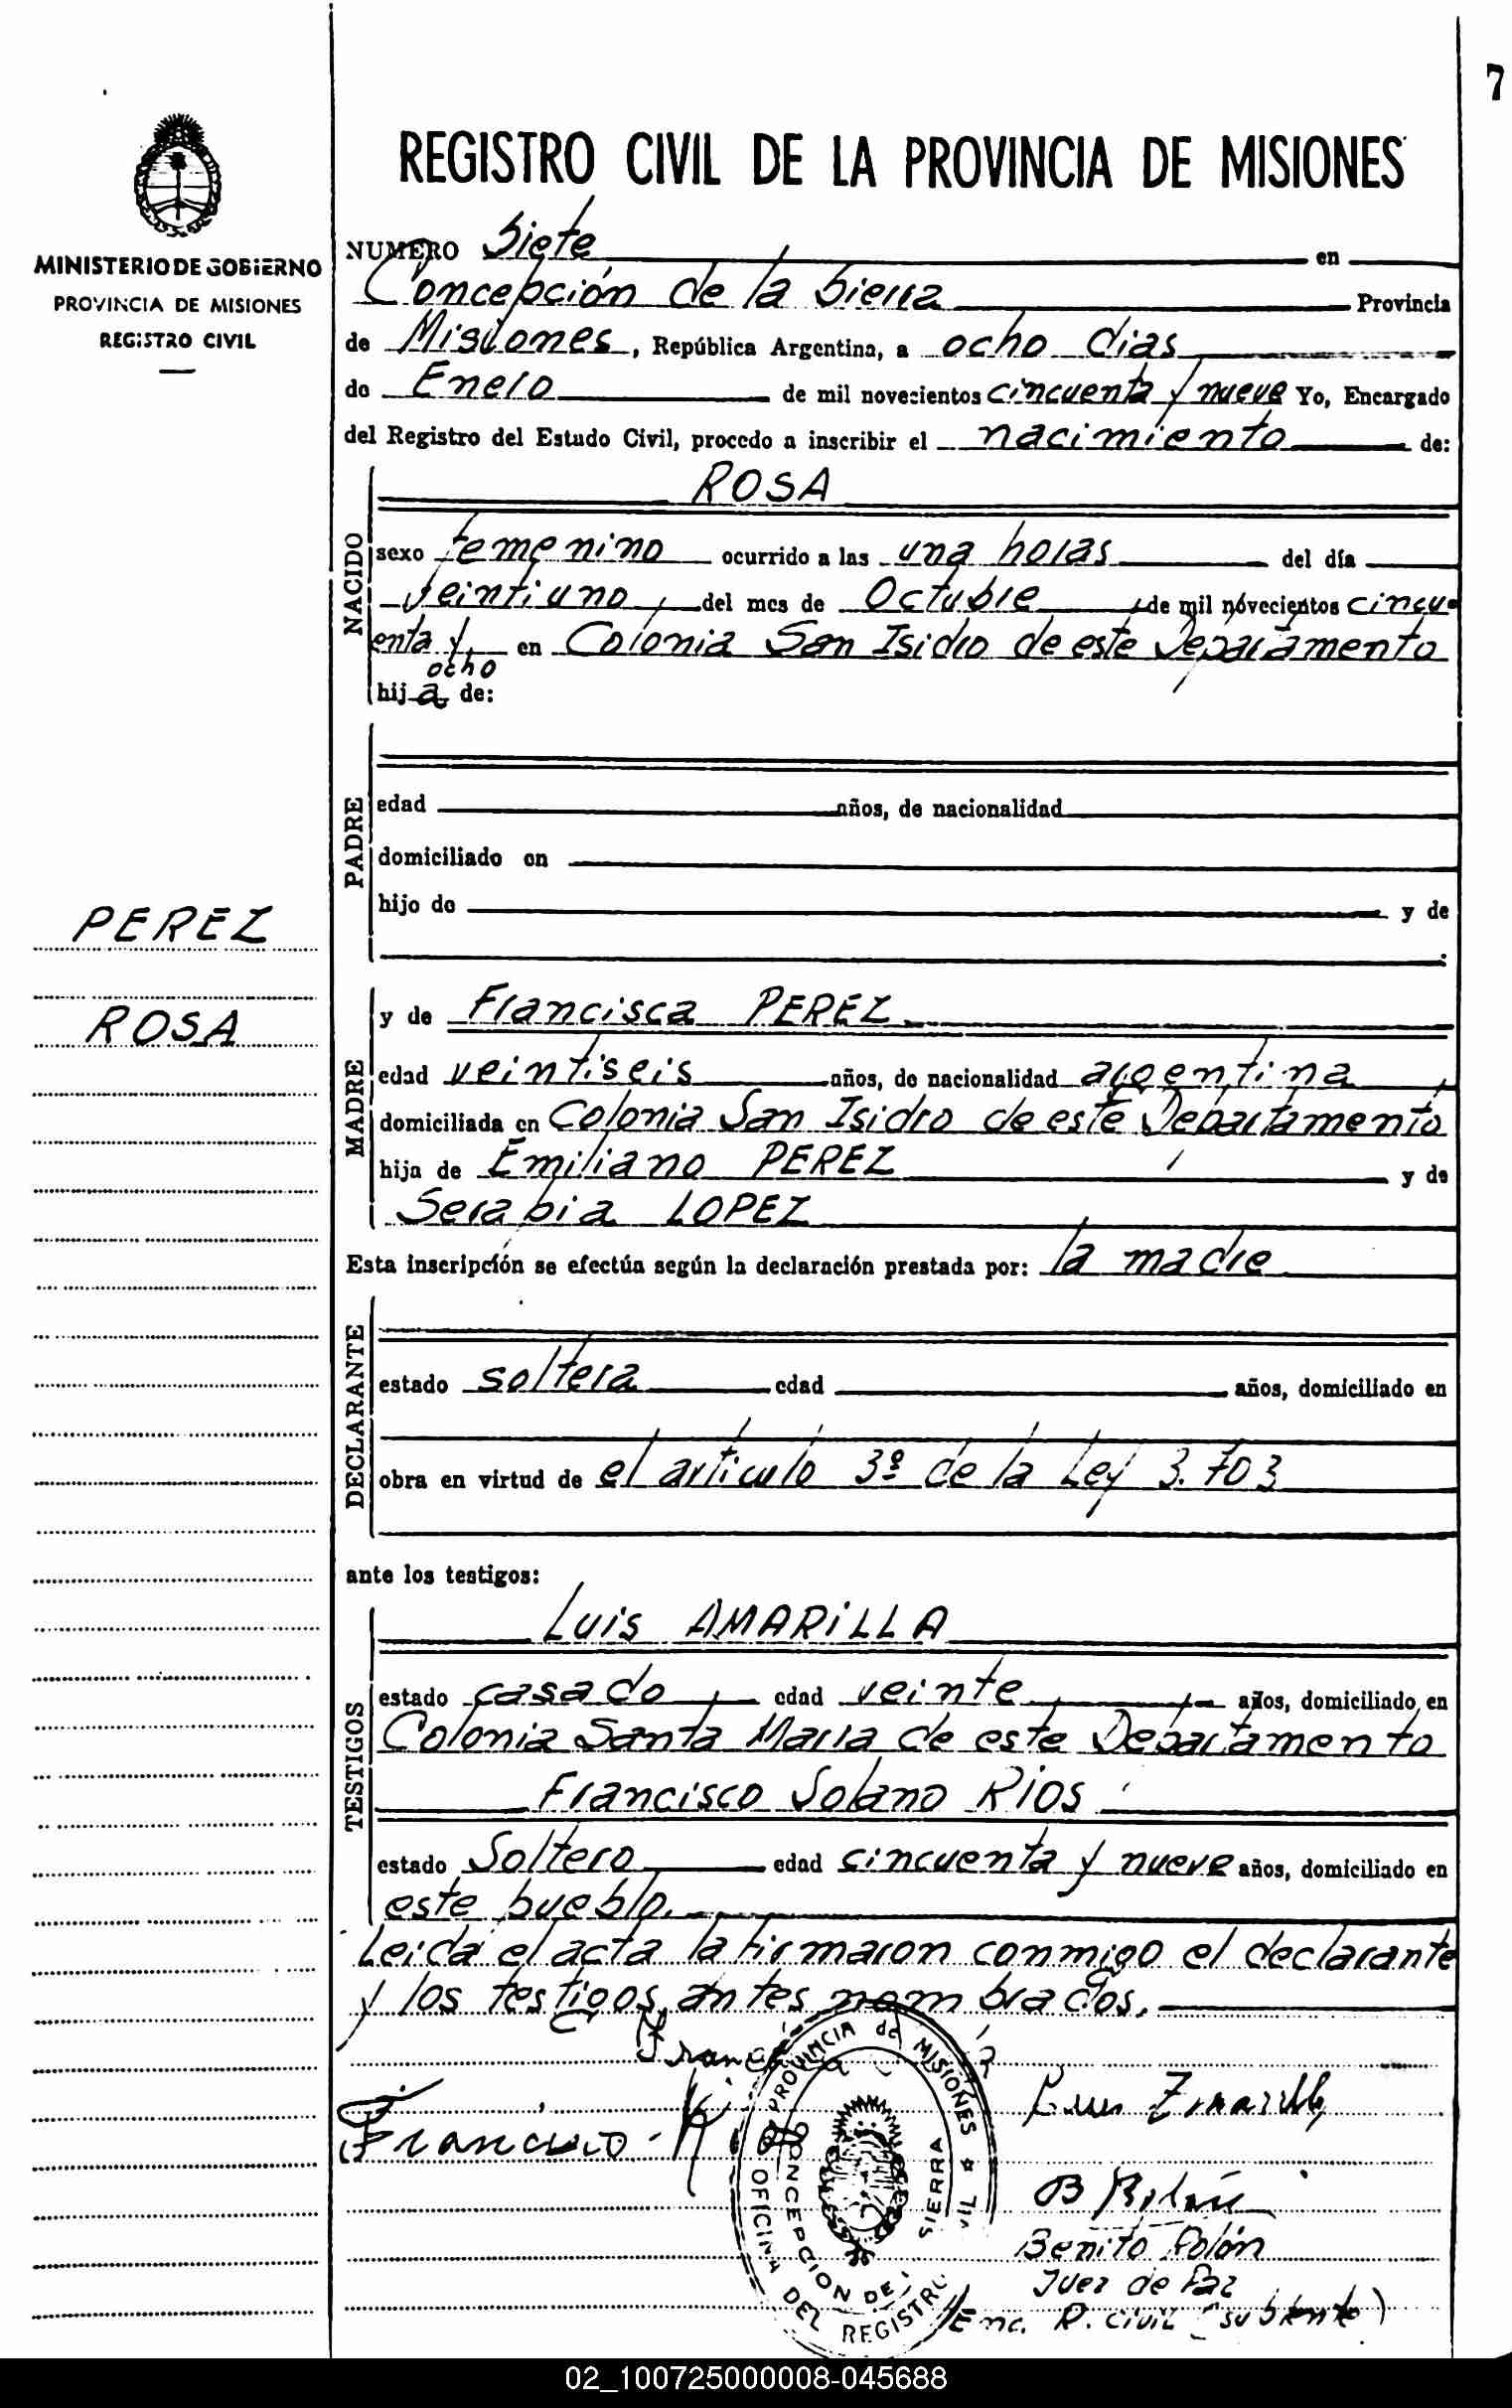 7
MINISTERIO DE GOBIERNO
PROVINCIA DE MISIONES
REGISTRO CIVIL
REGISTRO CIVIL DE LA PROVINCIA DE MISIONES
NUMERO Siete en
Concepción de la Sierra Provincia
de Misiones, República Argentina, a ocho dias
de Enero de mil novecientos cincuenta y nueve Yo, Encargado
del Registro del Estado Civil, procedo a inscribir el nacimiento de:
NACIDO
ROSA
sexo femenino ocurrido a las una horas del día
veintiuno, del mes de Octubre, de mil novecientos cincu-
enta y en Colonia San Isidro de este Departamento
ocho
hija de:
PADRE
edad años, de nacionalidad
domiciliado en
hijo de y de
PEREZ
ROSA
MADRE
y de Francisca PEREZ
edad veintiseis años, de nacionalidad argentina,
domiciliada en Colonia San Isidro de este Departamento
hija de Emiliano PEREZ y de
Serapia LOPEZ
Esta inscripción se efectúa según la declaración prestada por: la madre
DECLARANTE
estado soltera edad años, domiciliado en
obra en virtud de el artículo 3º de la Ley 3.703
ante los testigos:
TESTIGOS
Luis AMARiLLA
estado casado, edad veinte, años, domiciliado en
Colonia Santa Maria de este Departamento
Francisco Solano RIOS
estado Soltero, edad cincuenta y nueve años, domiciliado en
este pueblo.
Leida el acta la firmaron conmigo el declarante
y los testigos antes nombrados.
Francisco Rios
PROVINCIA de MISIONES
OFICINA DEL REGISTRO
CONCEPCION DE SIERRA
Benito Polón
Juez de Paz
Enc. R. Civil (subtente)
02_100725000008-045688